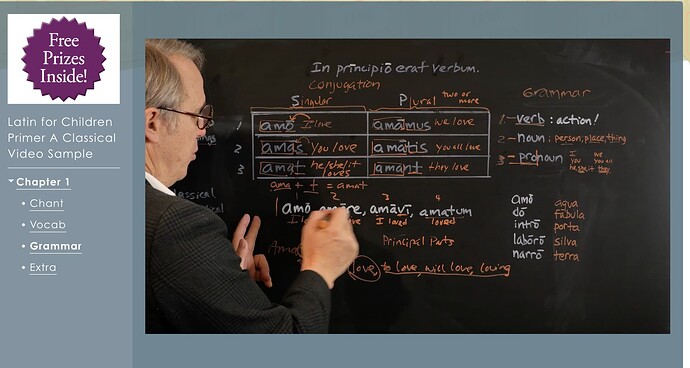 Free
Prizes
Inside!
Latin for Children
Primer A Classical
Video Sample
Chapter 1
Chant
Vocab
Grammar
Extra
In prīncipiō erat verbum.
Conjugation
Singular Plural two or more
1 amō I love amāmus we love
2 amās You love amātis you all love
3 amat he/she/it loves amant they love
ama + t = amat
1 2 3 4
amō, amāre, amāvī, amatum
I loved loved
Principal Parts
love, to love, will love, loving
Grammar
1- verb : action!
2- noun : person, place, thing
3- pronoun I we
you you all
he, she, it they
Amō aqua
dō fābula
intrō porta
labōrō silva
narrō terra